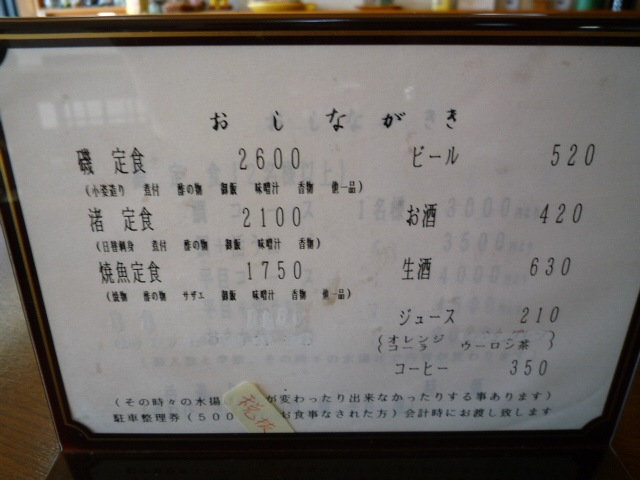 おしながき
磯 定食 2600
(小姿造り 煮付 酢の物 御飯 味噌汁 香物 他一品)
渚 定食 2100
(日替刺身 煮付 酢の物 御飯 味噌汁 香物)
焼魚定食 1750
(焼物 酢の物 サザエ 御飯 味噌汁 香物 他一品)
ビール 520
お酒 420
生酒 630
ジュース 210
(オレンジ
コーラ ウーロン茶)
コーヒー 350
(その時々の水揚 が変わったり出来なかったりする事あります)
駐車整理券(500 お食事なされた方)会計時にお渡し致します